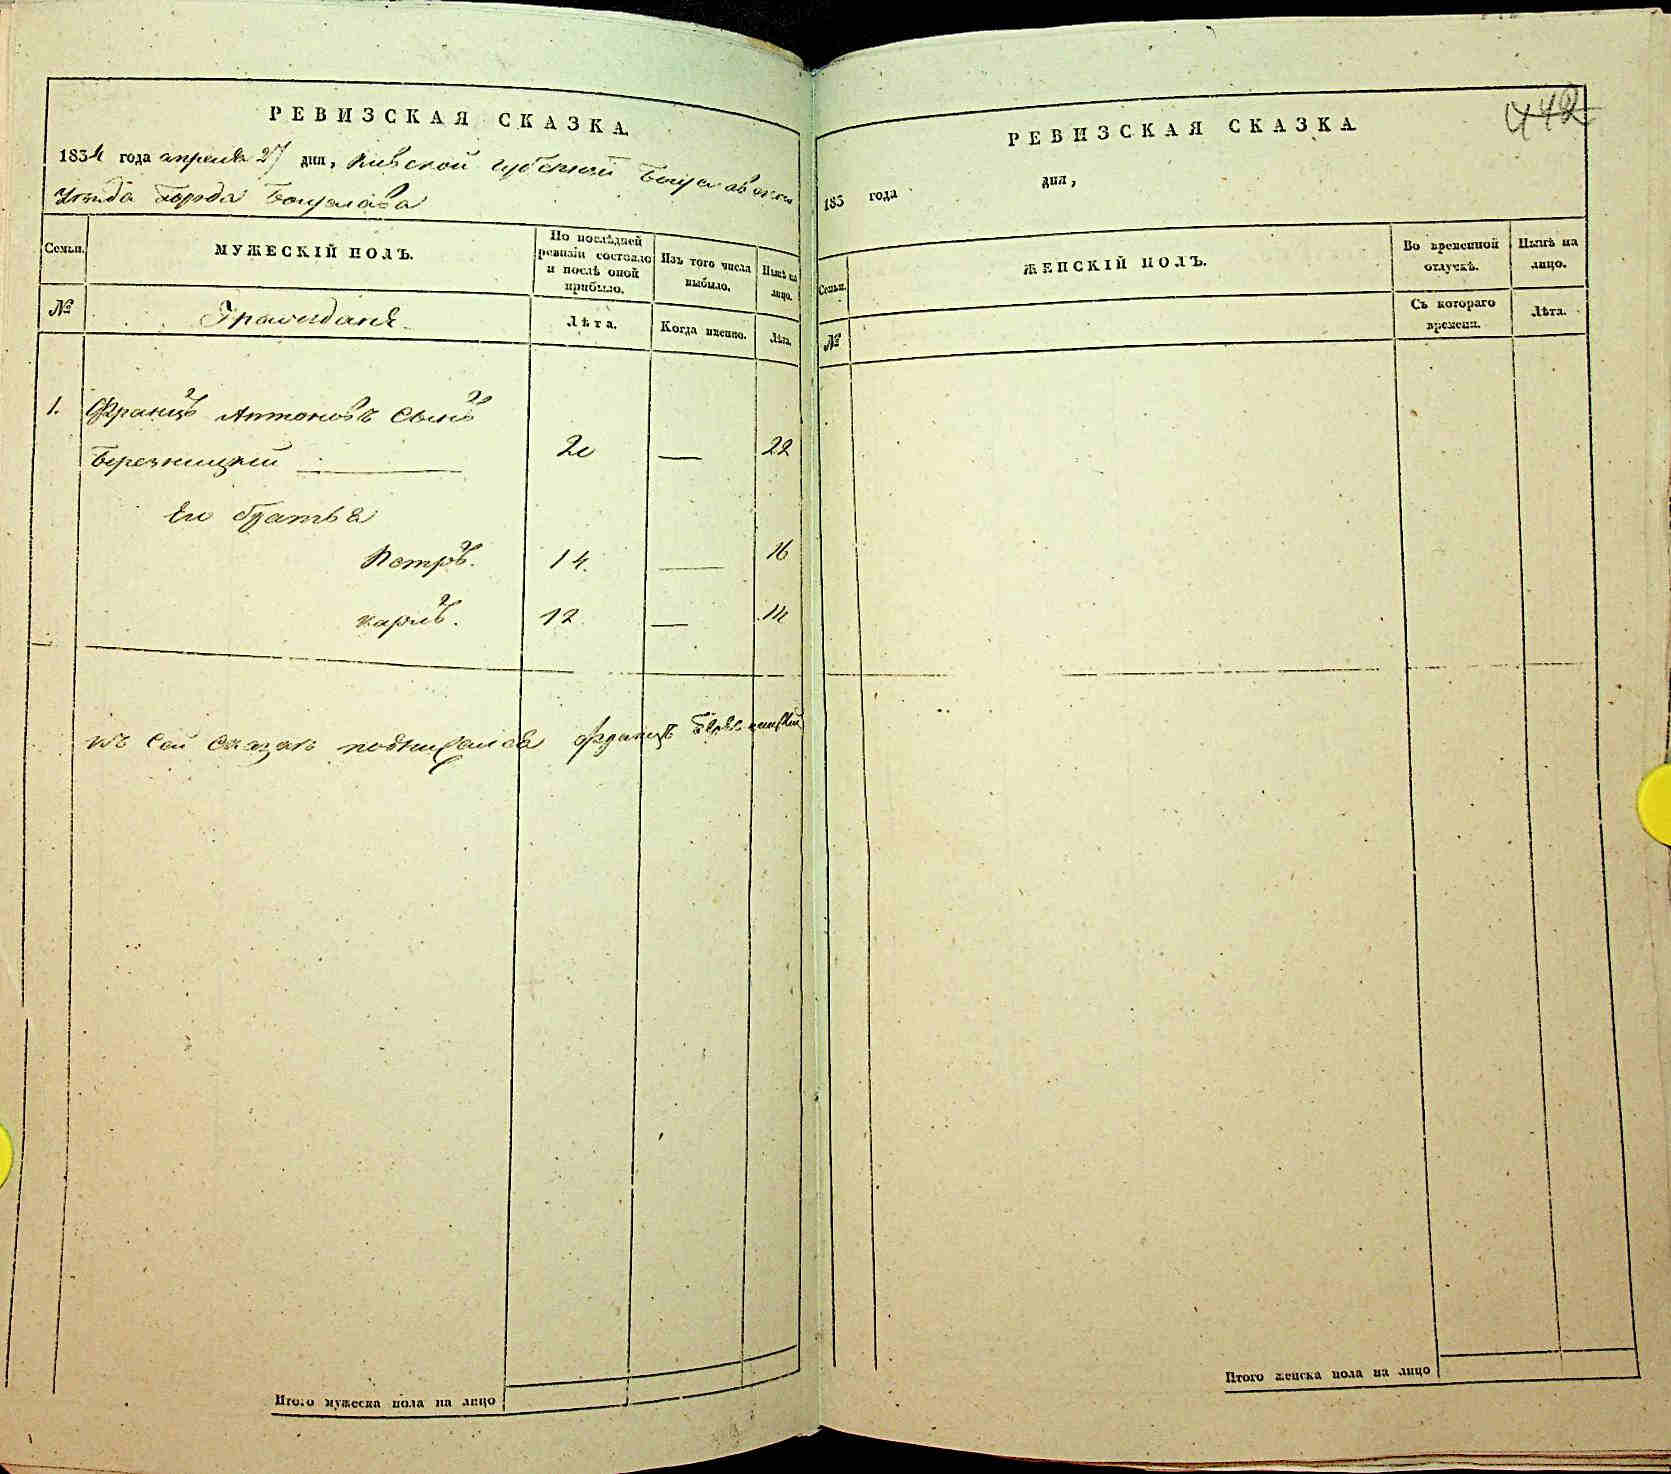 РЕВИЗСКАЯ СКАЗКА.
1834 года апреля 27 дня, Киевской губернии Богуславскаго
Уезда города Богуслава
Семьи.
МУЖЕСКІЙ ПОЛЪ.
По послѣдней ревизіи состояло и послѣ оной прибыло.
Изъ того числа выбыло.
Нынѣ на лицо.
№
Граждане
Лѣта.
Когда имянно.
Лѣта.
1. Францъ Антоновъ Сынъ
Березницкій 20 — 22
Его братья
Петръ. 14. — 16
Карлъ. 12 — 14
Къ сей сказкѣ подписался Францъ Березницкій
Итого мужеска пола на лицо
РЕВИЗСКАЯ СКАЗКА
442
183 года дня,
Семьи.
ЖЕНСКІЙ ПОЛЪ.
Во временной отлускѣ.
Нынѣ на лицо.
№
Съ котораго времени.
Лѣта.
Итого женска пола на лицо